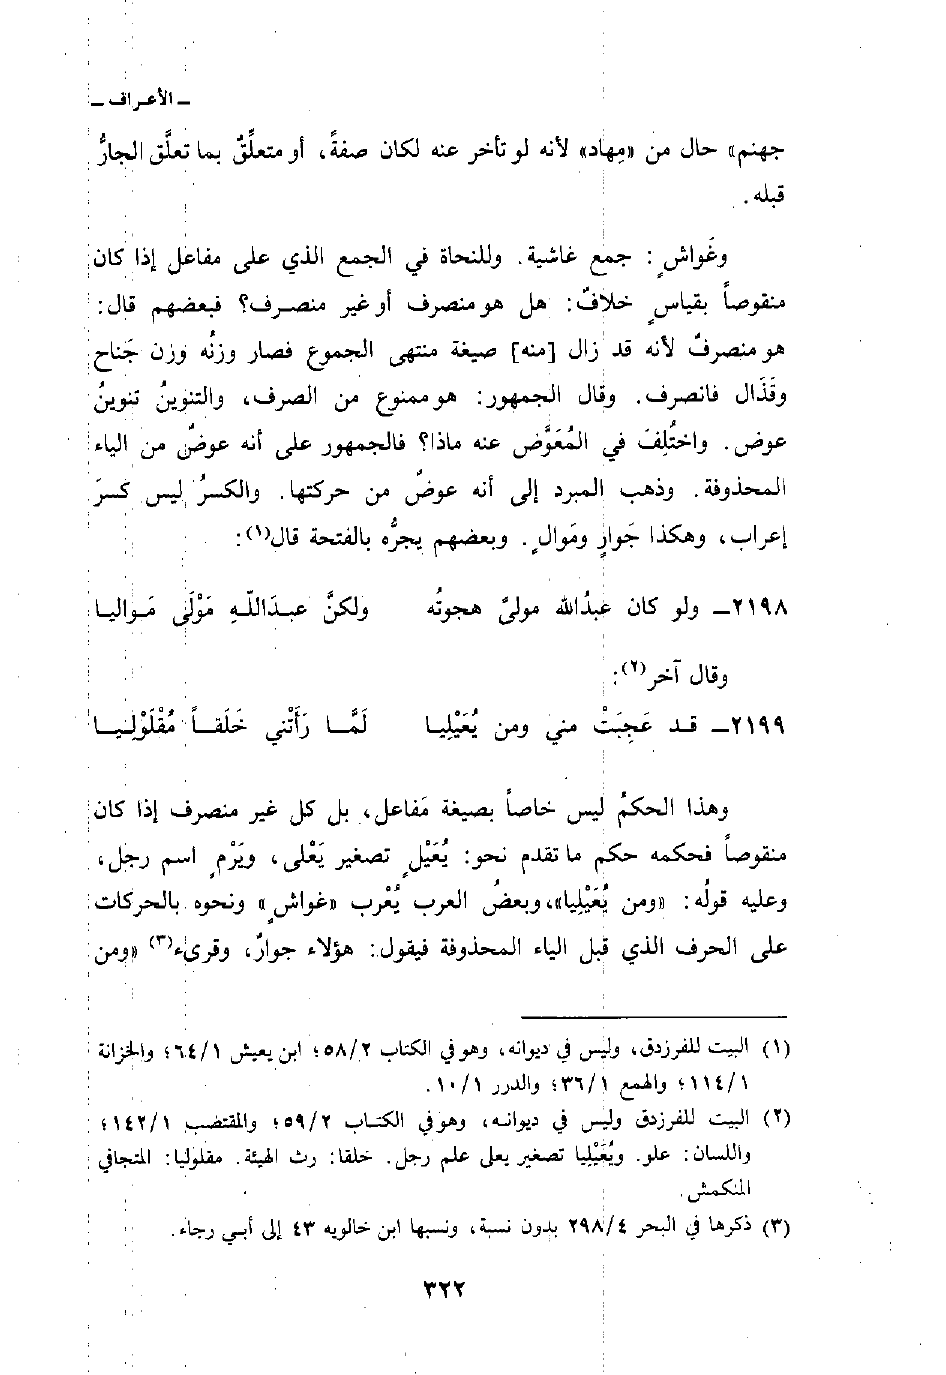 ـ الأعراف ـ
جهنم» حال من «مِهاد» لأنه لو تأخر عنه لكان صفةً، أو متعلِّقٌ بما تعلَّق الجارُّ
قبله .
وغَواشٍ : جمع غاشية. وللنحاة في الجمع الذي على مفاعل إذا كان
منقوصاً بقياسٍ خلافٌ: هل هو منصرف أو غير منصرف؟ فبعضهم قال:
هو منصرفٌ لأنه قد زال [منه] صيغة منتهى الجموع فصار وزنُه وزن جَناح
وقَذَال فانصرف. وقال الجمهور: هو ممنوع من الصرف، والتنوينُ تنوينُ
عوض. واختُلِفَ في المُعَوَّض عنه ماذا؟ فالجمهور على أنه عوضٌ من الياء
المحذوفة. وذهب المبرد إلى أنه عوضٌ من حركتها. والكسرُ ليس كسرَ
إعراب، وهكذا جَوارٍ ومَوالٍ. وبعضهم يجرُّه بالفتحة قال(١):
٢١٩٨ـ ولو كان عبدُالله مولىً هجوتُه ولكنَّ عبدَاللّهِ مَوْلَى مَواليا
وقال آخر(٢):
٢١٩٩ـ قد عَجِبَتْ مني ومن يُعَيْلِيا لَمَّا رَأَتْني خَلَقاً مُقْلَوْلِيا
وهذا الحكمُ ليس خاصاً بصيغة مَفاعل، بل كل غير منصرف إذا كان
منقوصاً فحكمه حكم ما تقدم نحو: يُعَيْلٍ تصغير يَعْلى، ويَرْمٍ اسم رجل،
وعليه قولُه: «ومن يُعَيْلِيا»، وبعضُ العرب يُعْرب «غواشٍ» ونحوه بالحركات
على الحرف الذي قبل الياء المحذوفة فيقول: هؤلاء جوارٌ، وقرىء(٣) «ومن
(١) البيت للفرزدق، وليس في ديوانه، وهو في الكتاب ٥٨/٢؛ ابن يعيش ٦٤/١؛ والخزانة
١١٤/١؛ والهمع ٣٦/١؛ والدرر ١٠/١.
(٢) البيت للفرزدق وليس في ديوانه، وهو في الكتاب ٥٩/٢؛ والمقتضب ١٤٢/١؛
واللسان: علو. ويُعَيْلِيا تصغير يعلى علم رجل. خلقا: رث الهيئة. مقلوليا: المتجافي
المنكمش.
(٣) ذكرها في البحر ٢٩٨/٤ بدون نسبة، ونسبها ابن خالويه ٤٣ إلى أبي رجاء.
٣٢٢